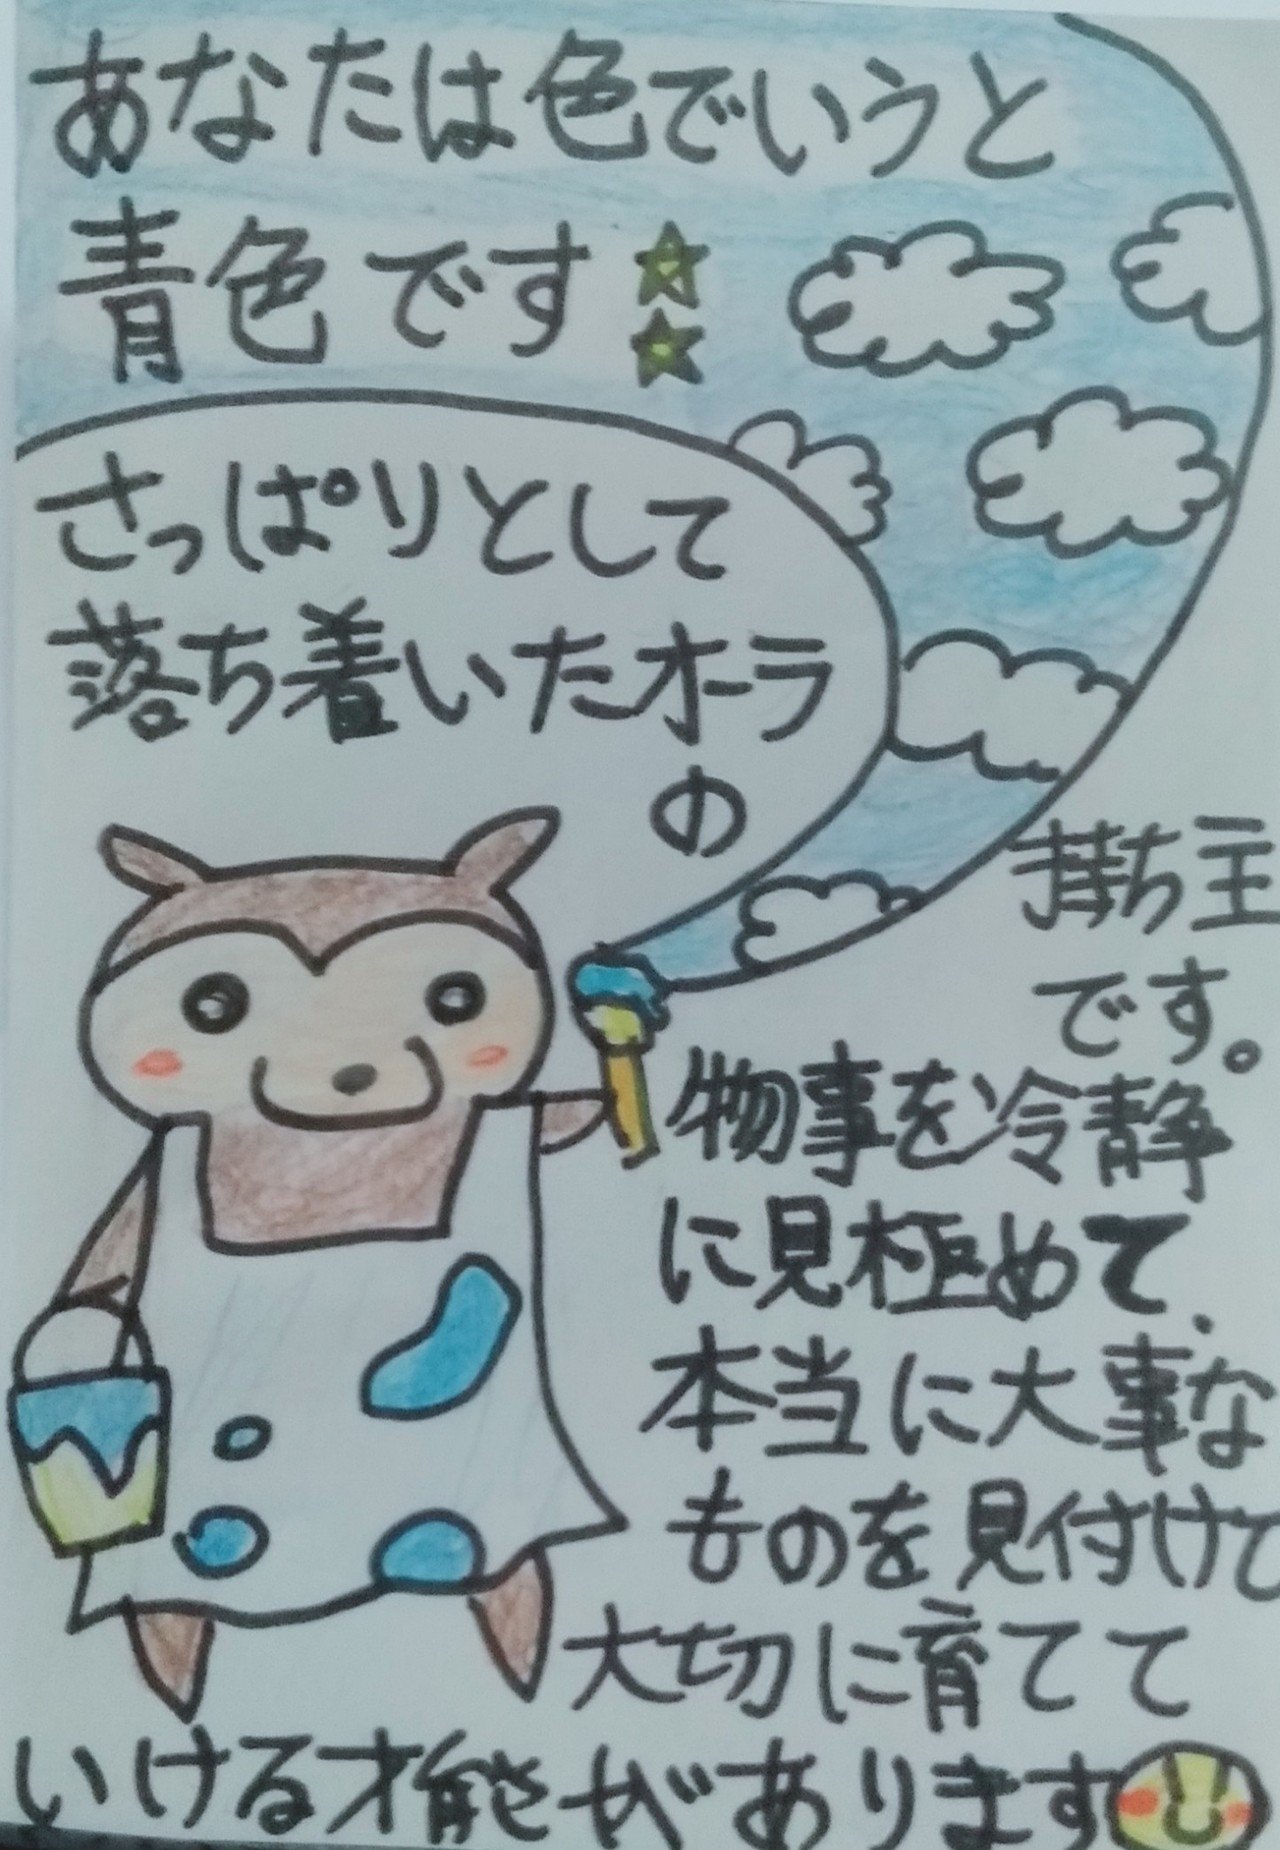 あなたは色でいうと
青色です
さっぱりとして
落ち着いたオーラ
の
持ち主
です。
物事を冷静
に見極めて、
本当に大事な
ものを見付けて
大切に育てて
いける才能があります